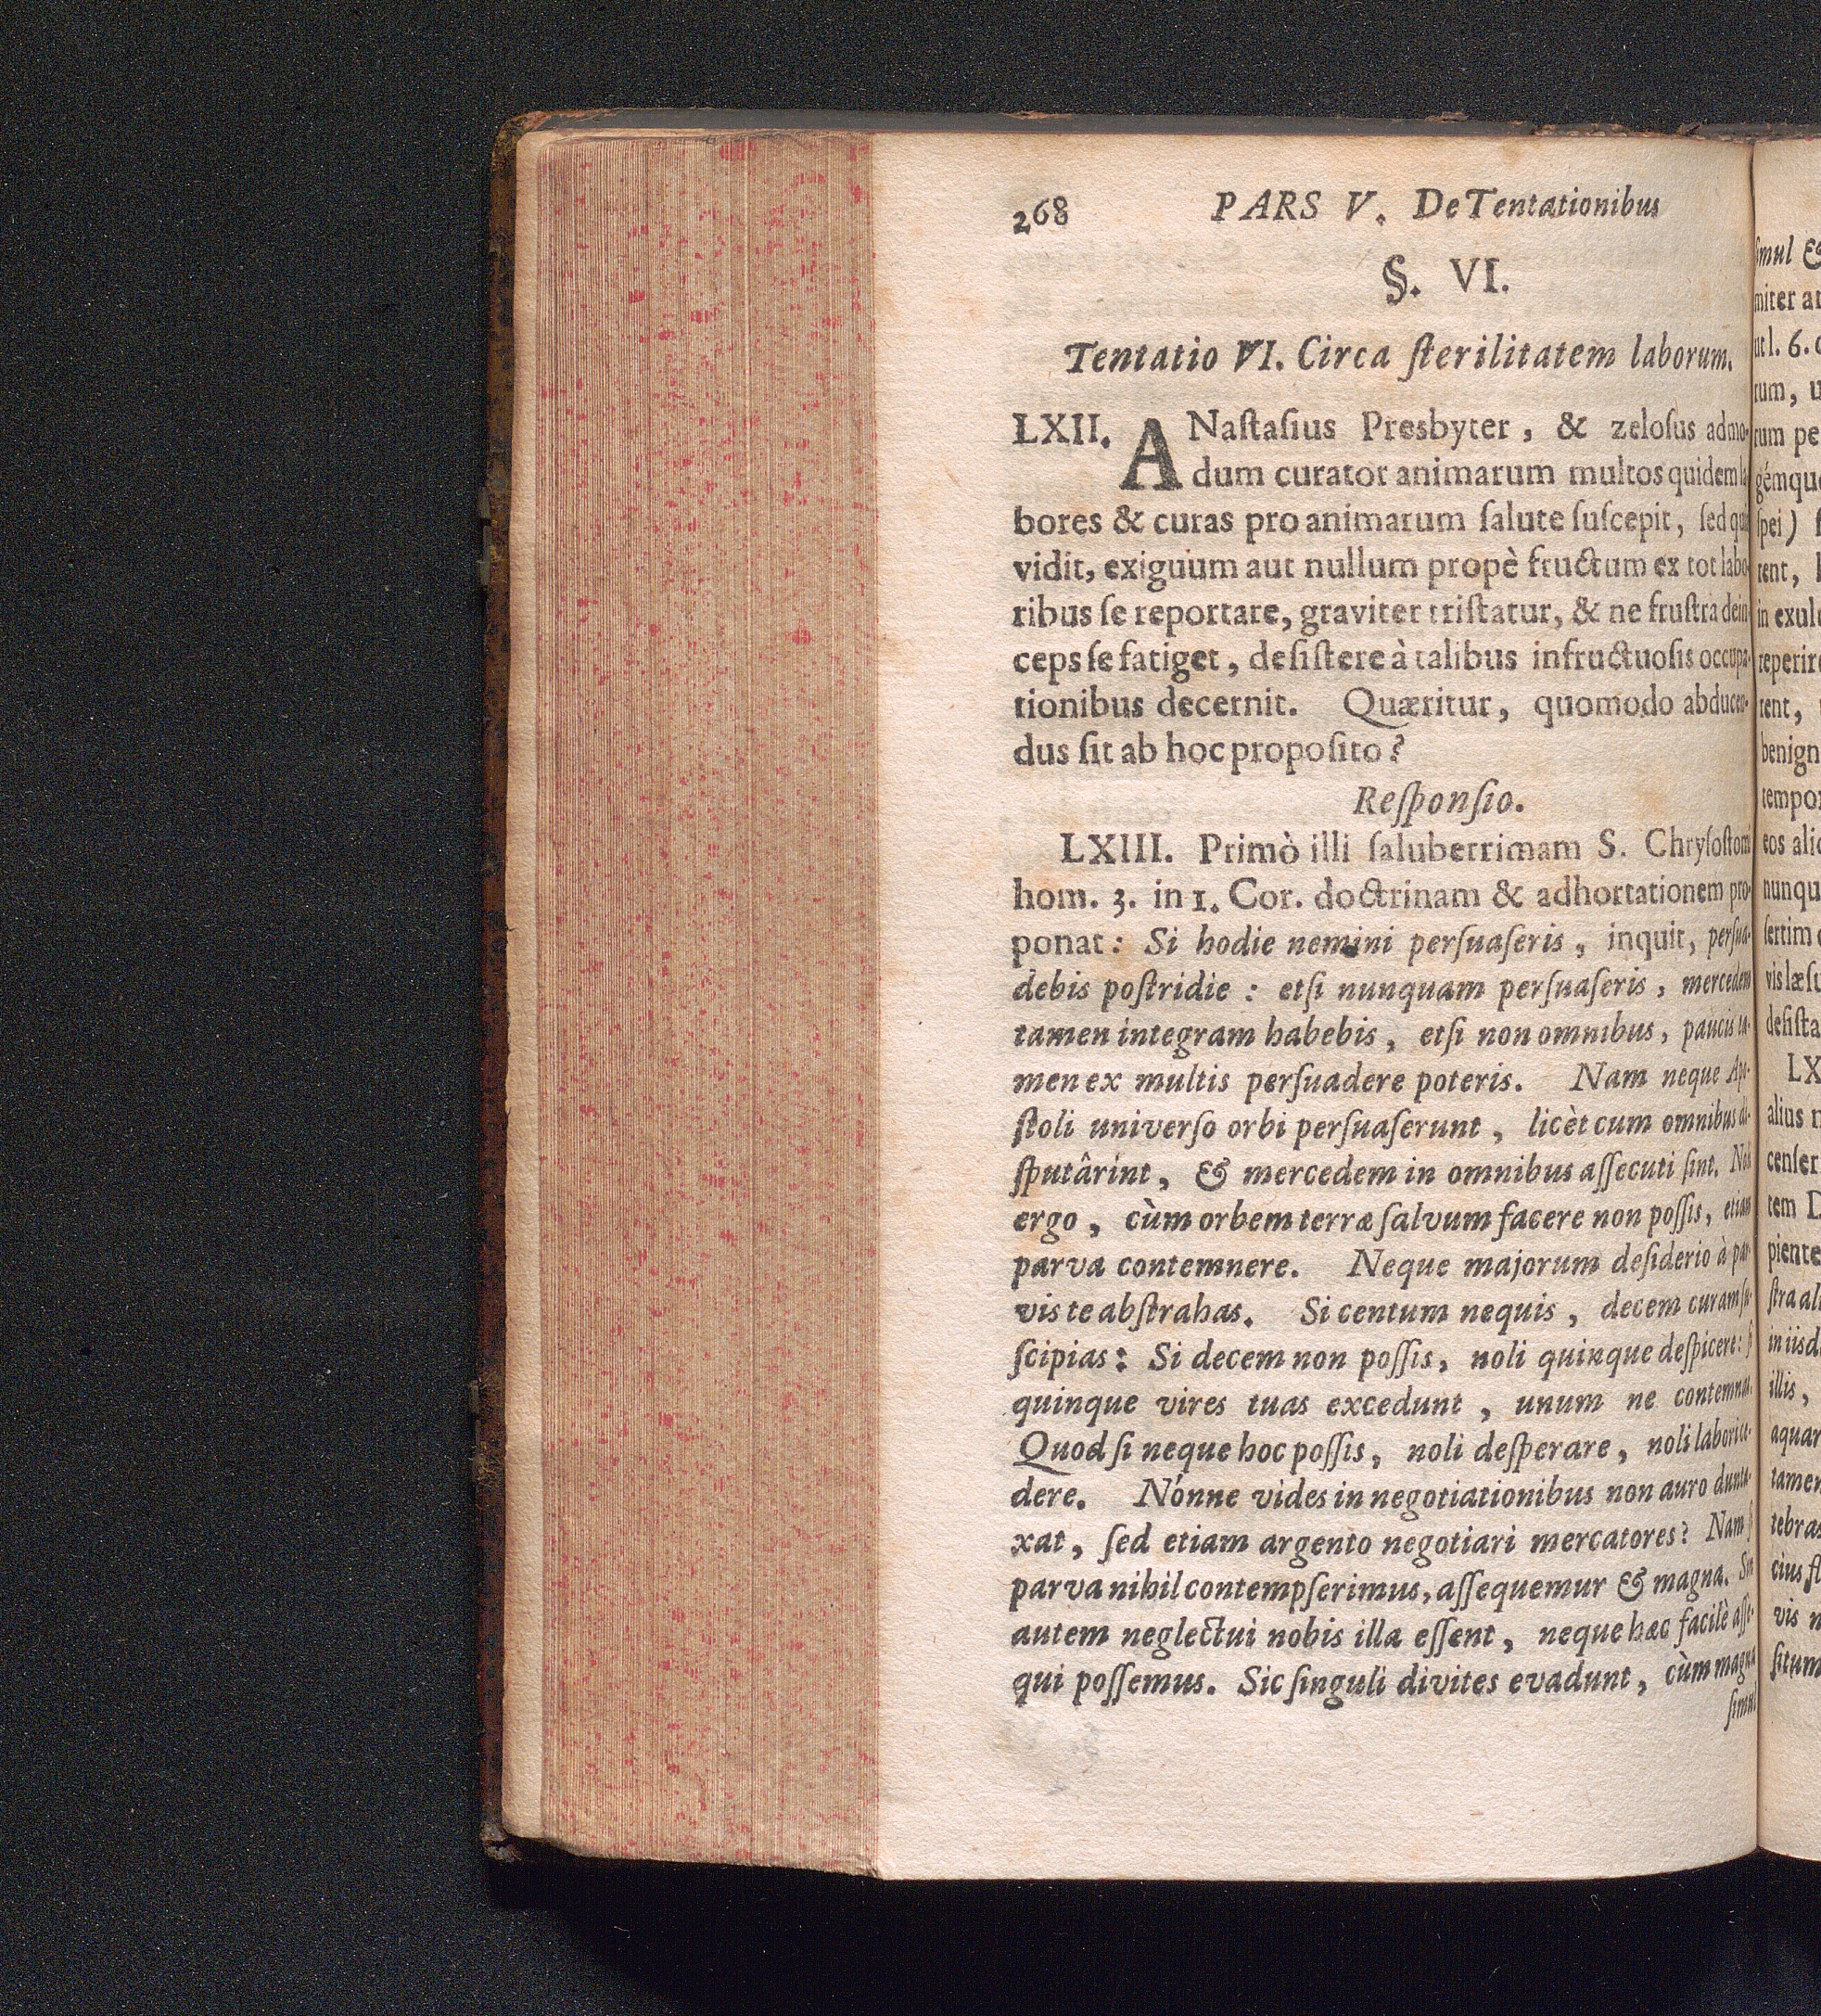 268 PARS V. De Tentationibus
§. VI.
Tentatio VI. Circa ſterilitatem laborum.
LXII. ANaſtaſius Presbyter, & zeloſus admo-
dum curator animarum multos quidem la
bores & curas pro animarum ſalute ſuſcepit, ſed quia
vidit, exiguum aut nullum propè fructum ex tot labo
ribus ſe reportare, graviter triſtatur, & ne fruſtra dein
ceps ſe fatiget, deſiſtere à talibus infructuoſis occupa-
tionibus decernit. Quæritur, quomodo abducen-
dus ſit ab hoc propoſito?
Reſponſio.
LXIII. Primò illi ſaluberrimam S. Chryſoſtomi
hom. 3. in 1. Cor. doctrinam & adhortationem pro-
ponat: Si hodie nemini perſuaſeris, inquit, perſua-
debis poſtridie: etſi nunquam perſuaſeris, mercedem
tamen integram habebis, etſi non omnibus, paucis ta-
men ex multis perſuadere poteris. Nam neque Apo-
ſtoli univerſo orbi perſuaſerunt, licèt cum omnibus di-
ſputârint, & mercedem in omnibus aſſecuti ſint. Noli
ergo, cùm orbem terræ ſalvum facere non poſſis, etiam
parva contemnere. Neque majorum deſiderio à par-
vis te abſtrahas. Si centum nequis, decem curam ſu-
ſcipias: Si decem non poſſis, noli quinque deſpicere: ſi
quinque vires tuas excedunt, unum ne contemnas.
Quod ſi neque hoc poſſis, noli deſperare, noli labori ce-
dere. Nónne vides in negotiationibus non auro dunta-
xat, ſed etiam argento negotiari mercatores? Nam ſi
parva nihil contempſerimus, aſſequemur & magna. Sin
autem neglectui nobis illa eſſent, neque hæc facilè aſſe-
qui poſſemus. Sic ſinguli divites evadunt, cùm magna
ſimul